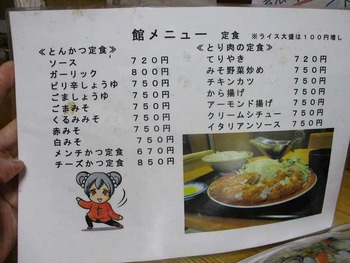 館メニュー 定食 ※ライス大盛は100円増し
≪とんかつ定食≫
ソース 720円
ガーリック 800円
ピリ辛しょうゆ 750円
ごましょうゆ 750円
ごまみそ 750円
くるみみそ 750円
赤みそ 750円
白みそ 750円
メンチかつ定食 670円
チーズかつ定食 850円
≪とり肉の定食≫
てりやき 720円
みそ野菜炒め 750円
チキンカツ 750円
から揚げ 750円
アーモンド揚げ 750円
クリームシチュー 750円
イタリアンソース 750円